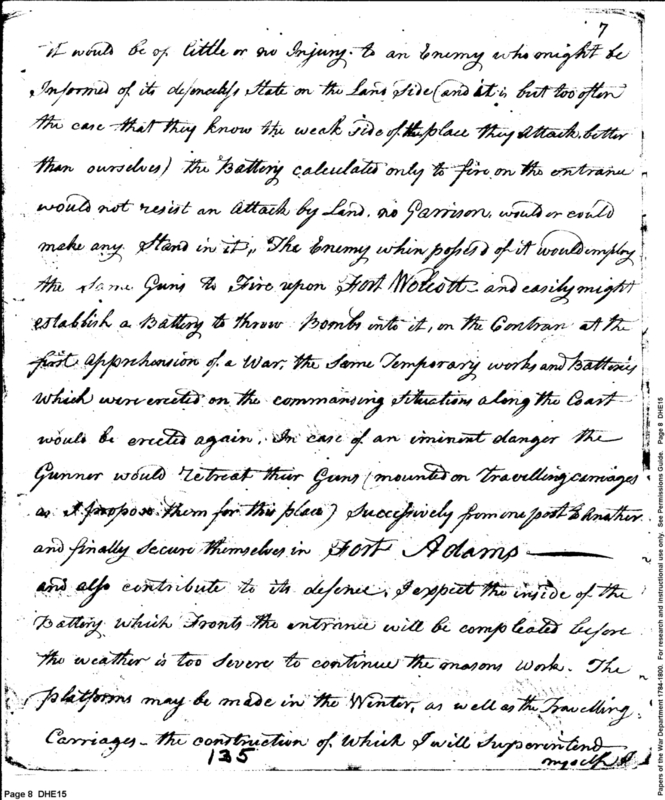 7
it would be of little or no Injury to an Enemy who might be
Informed of its defenceless State on the Land Side (and it is but too often
the case that they know the weak side of the place they Attack better
than ourselves) the Battery calculated only to fire on the entrance
would not resist an Attack by Land. no Garrison, would or could
make any Stand in it, The Enemy whin posses'd of it would employ
the same Guns to Fire upon Fort Wolcott and easily might
establish a Battery to throw Bombs into it, on the Contran at the
first apprehension of a War, the Same Temporary works and Batteries
which were erected on the commanding Situations along the Coast
would be erected again. In case of an iminent danger the
Gunner would retreat their Guns (mounted on Travelling carriages
as I propose them for this place) Successively from one post to Another
and finally Secure themselves in Fort Adams
and also contribute to its defence. I expect the inside of the
Battery which Fronts the entrance will be compleated before
the weather is too Severe to continue the masons Work. The
platforms may be made in the Winter, as well as the Travelling
Carriages - the construction of Which I will Superintend
myself
135
Page 8 DHE15
Papers of the War Department 1784-1800. For research and instructional use only. See Permissions Guide. Page 8 DHE15